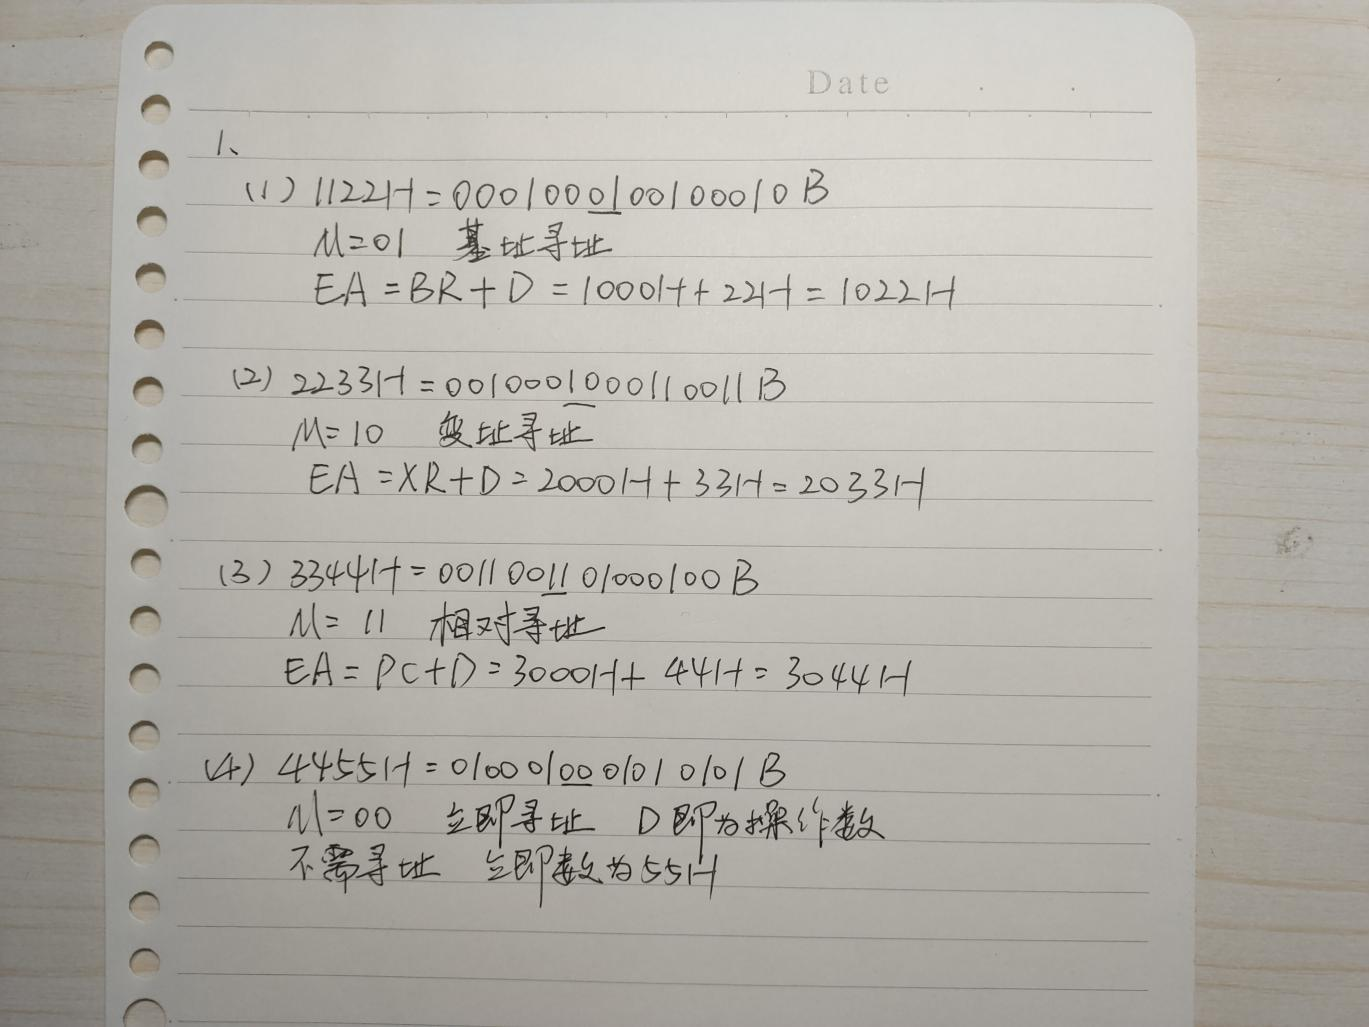 Date
1、
(1) 1122H=0001000100100010B
M=01 基址寻址
EA=BR+D=1000H+22H=1022H
(2) 2233H=0010001000110011B
M=10 变址寻址
EA=XR+D=2000H+33H=2033H
(3) 3344H=0011001101000100B
M=11 相对寻址
EA=PC+D=3000H+44H=3044H
(4) 4455H=0100010001010101B
M=00 立即寻址 D即为操作数
不需寻址 立即数为55H